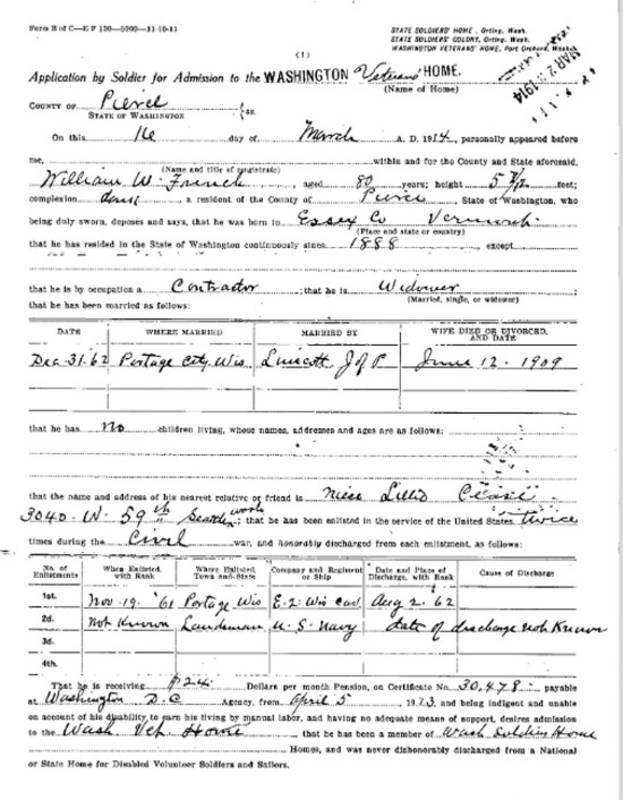 Form B of C—E F 130—5000—11-10-11
STATE SOLDIERS' HOME, Orting, Wash.
STATE SOLDIERS' COLONY, Orting, Wash.
WASHINGTON VETERANS' HOME, Port Orchard, Wash.
(1)
MAR 2 1914
Application by Soldier for Admission to the WASHINGTON Veterans HOME.
(Name of Home)
COUNTY OF Pierce
STATE OF WASHINGTON } ss.
On this 16 day of March A. D. 1914, personally appeared before
me, within and for the County and State aforesaid,
(Name and title of magistrate)
William W. French, aged 80 years; height 5 7/12 feet;
complexion dark, a resident of the County of Pierce, State of Washington, who
being duly sworn, deposes and says, that he was born in Essex Co Vermont
(Place and state or country)
that he has resided in the State of Washington continuously since 1888, except
that he is by occupation a Contractor; that he is Widower;
(Married, single, or widower)
that he has been married as follows:
DATE WHERE MARRIED MARRIED BY WIFE DIED OR DIVORCED, AND DATE
Dec-31-62 Portage City Wis J of P June 12-1909
that he has no children living, whose names, addresses and ages are as follows:
that the name and address of his nearest relative or friend is Niece Lillis
3040-W-59th Seattle Wash; that he has been enlisted in the service of the United States twice
times during the Civil war, and honorably discharged from each enlistment, as follows:
No. of Enlistments When Enlisted, with Rank Where Enlisted, Town and State Company and Regiment or Ship Date and Place of Discharge, with Rank Cause of Discharge
1st. Nov-19-'61 Portage-Wis E-2-Wis Cav. Aug 2-62
2d. Not Known Landsman U-S-Navy date of discharge not Known
3d.
4th.
That he is receiving $24 Dollars per month Pension, on Certificate No. 30,478 payable
at Washington D.C Agency, from April 5, 1913, and being indigent and unable
on account of his disability to earn his living by manual labor, and having no adequate means of support, desires admission
to the Wash. Vet. Home that he has been a member of Wash Soldiers Home
Homes, and was never dishonorably discharged from a National
or State Home for Disabled Volunteer Soldiers and Sailors.